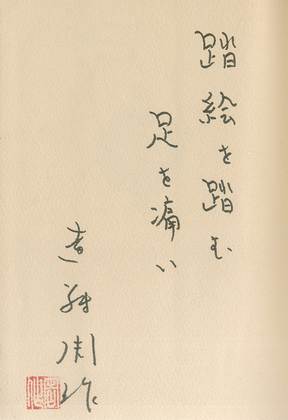 踏絵を踏む
足を痛い
遠藤周作